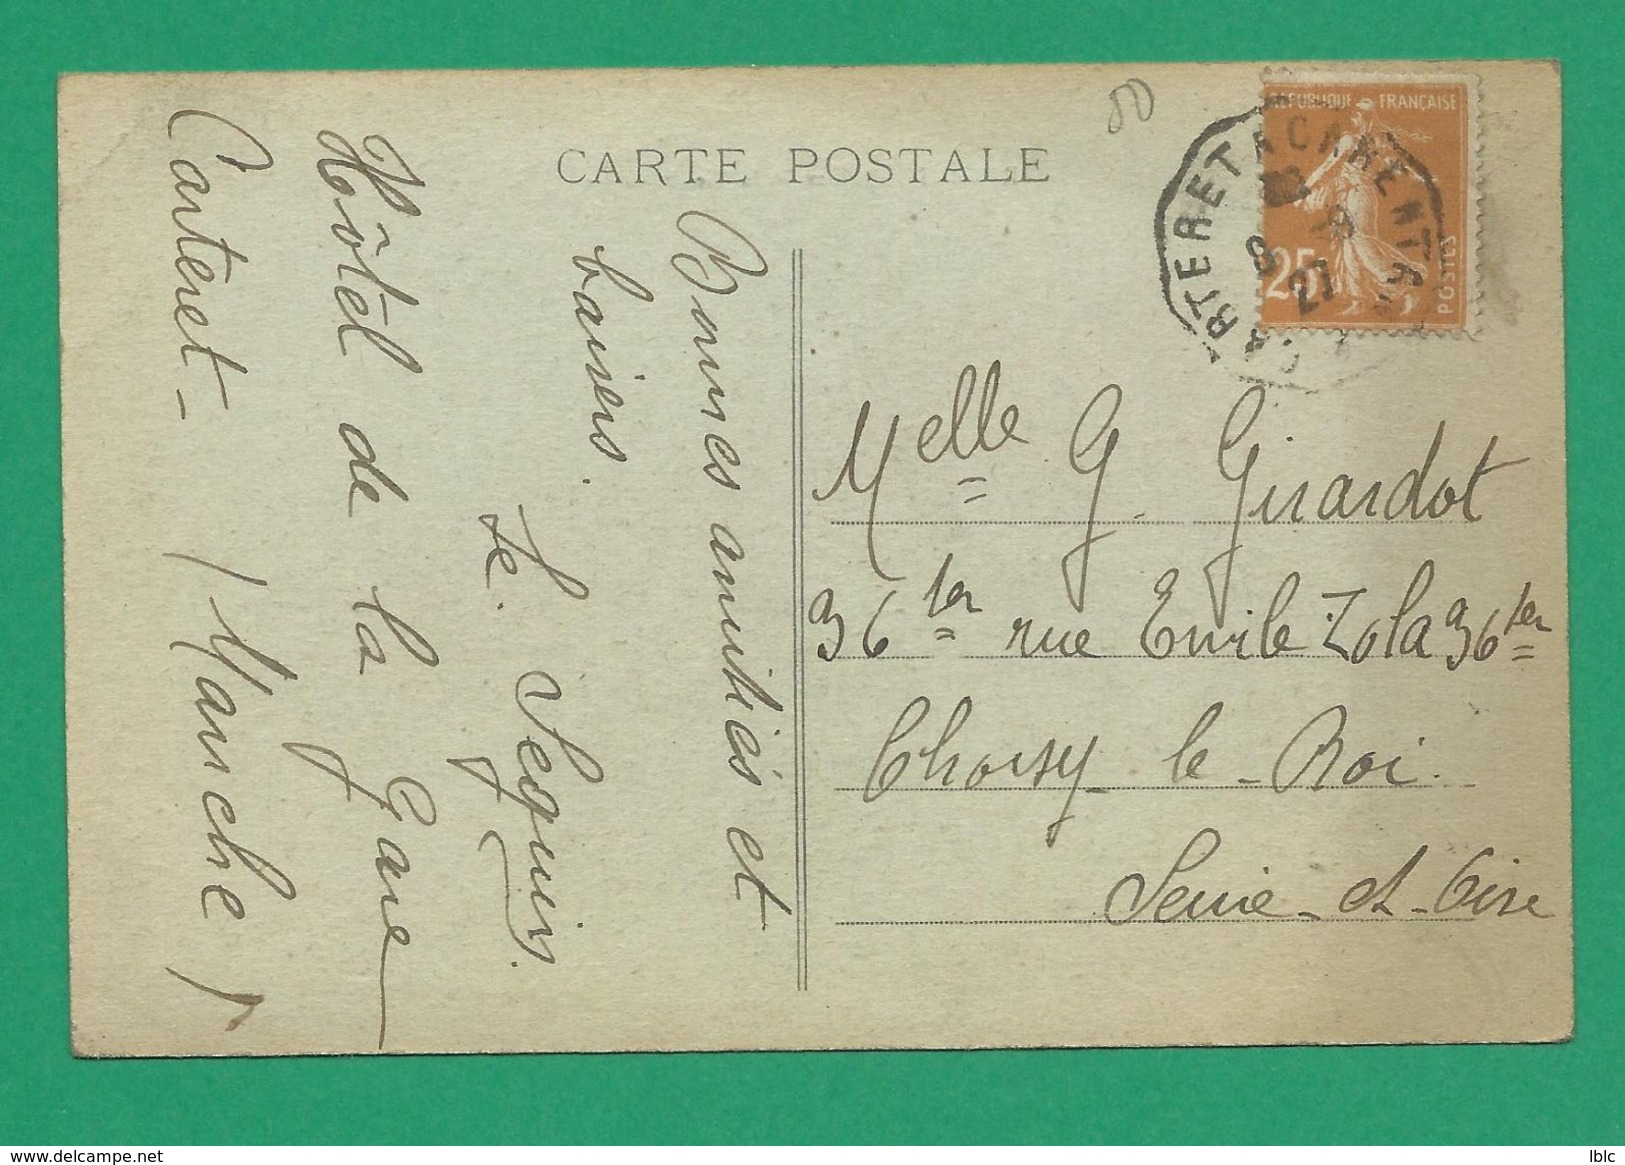 CARTE POSTALE
50
REPUBLIQUE FRANÇAISE
25
POSTES
CARTERET A CARENTAN
8 -8
27
Bonnes amitiés et
baisers.
Seguin.
Hôtel de la Gare
Carteret - (Manche)
Melle G. Girardot
36 ter rue Emile Zola 36 ter
Choisy - le - Roi.
Seine - et - Oise
www.delcampe.net
lblc